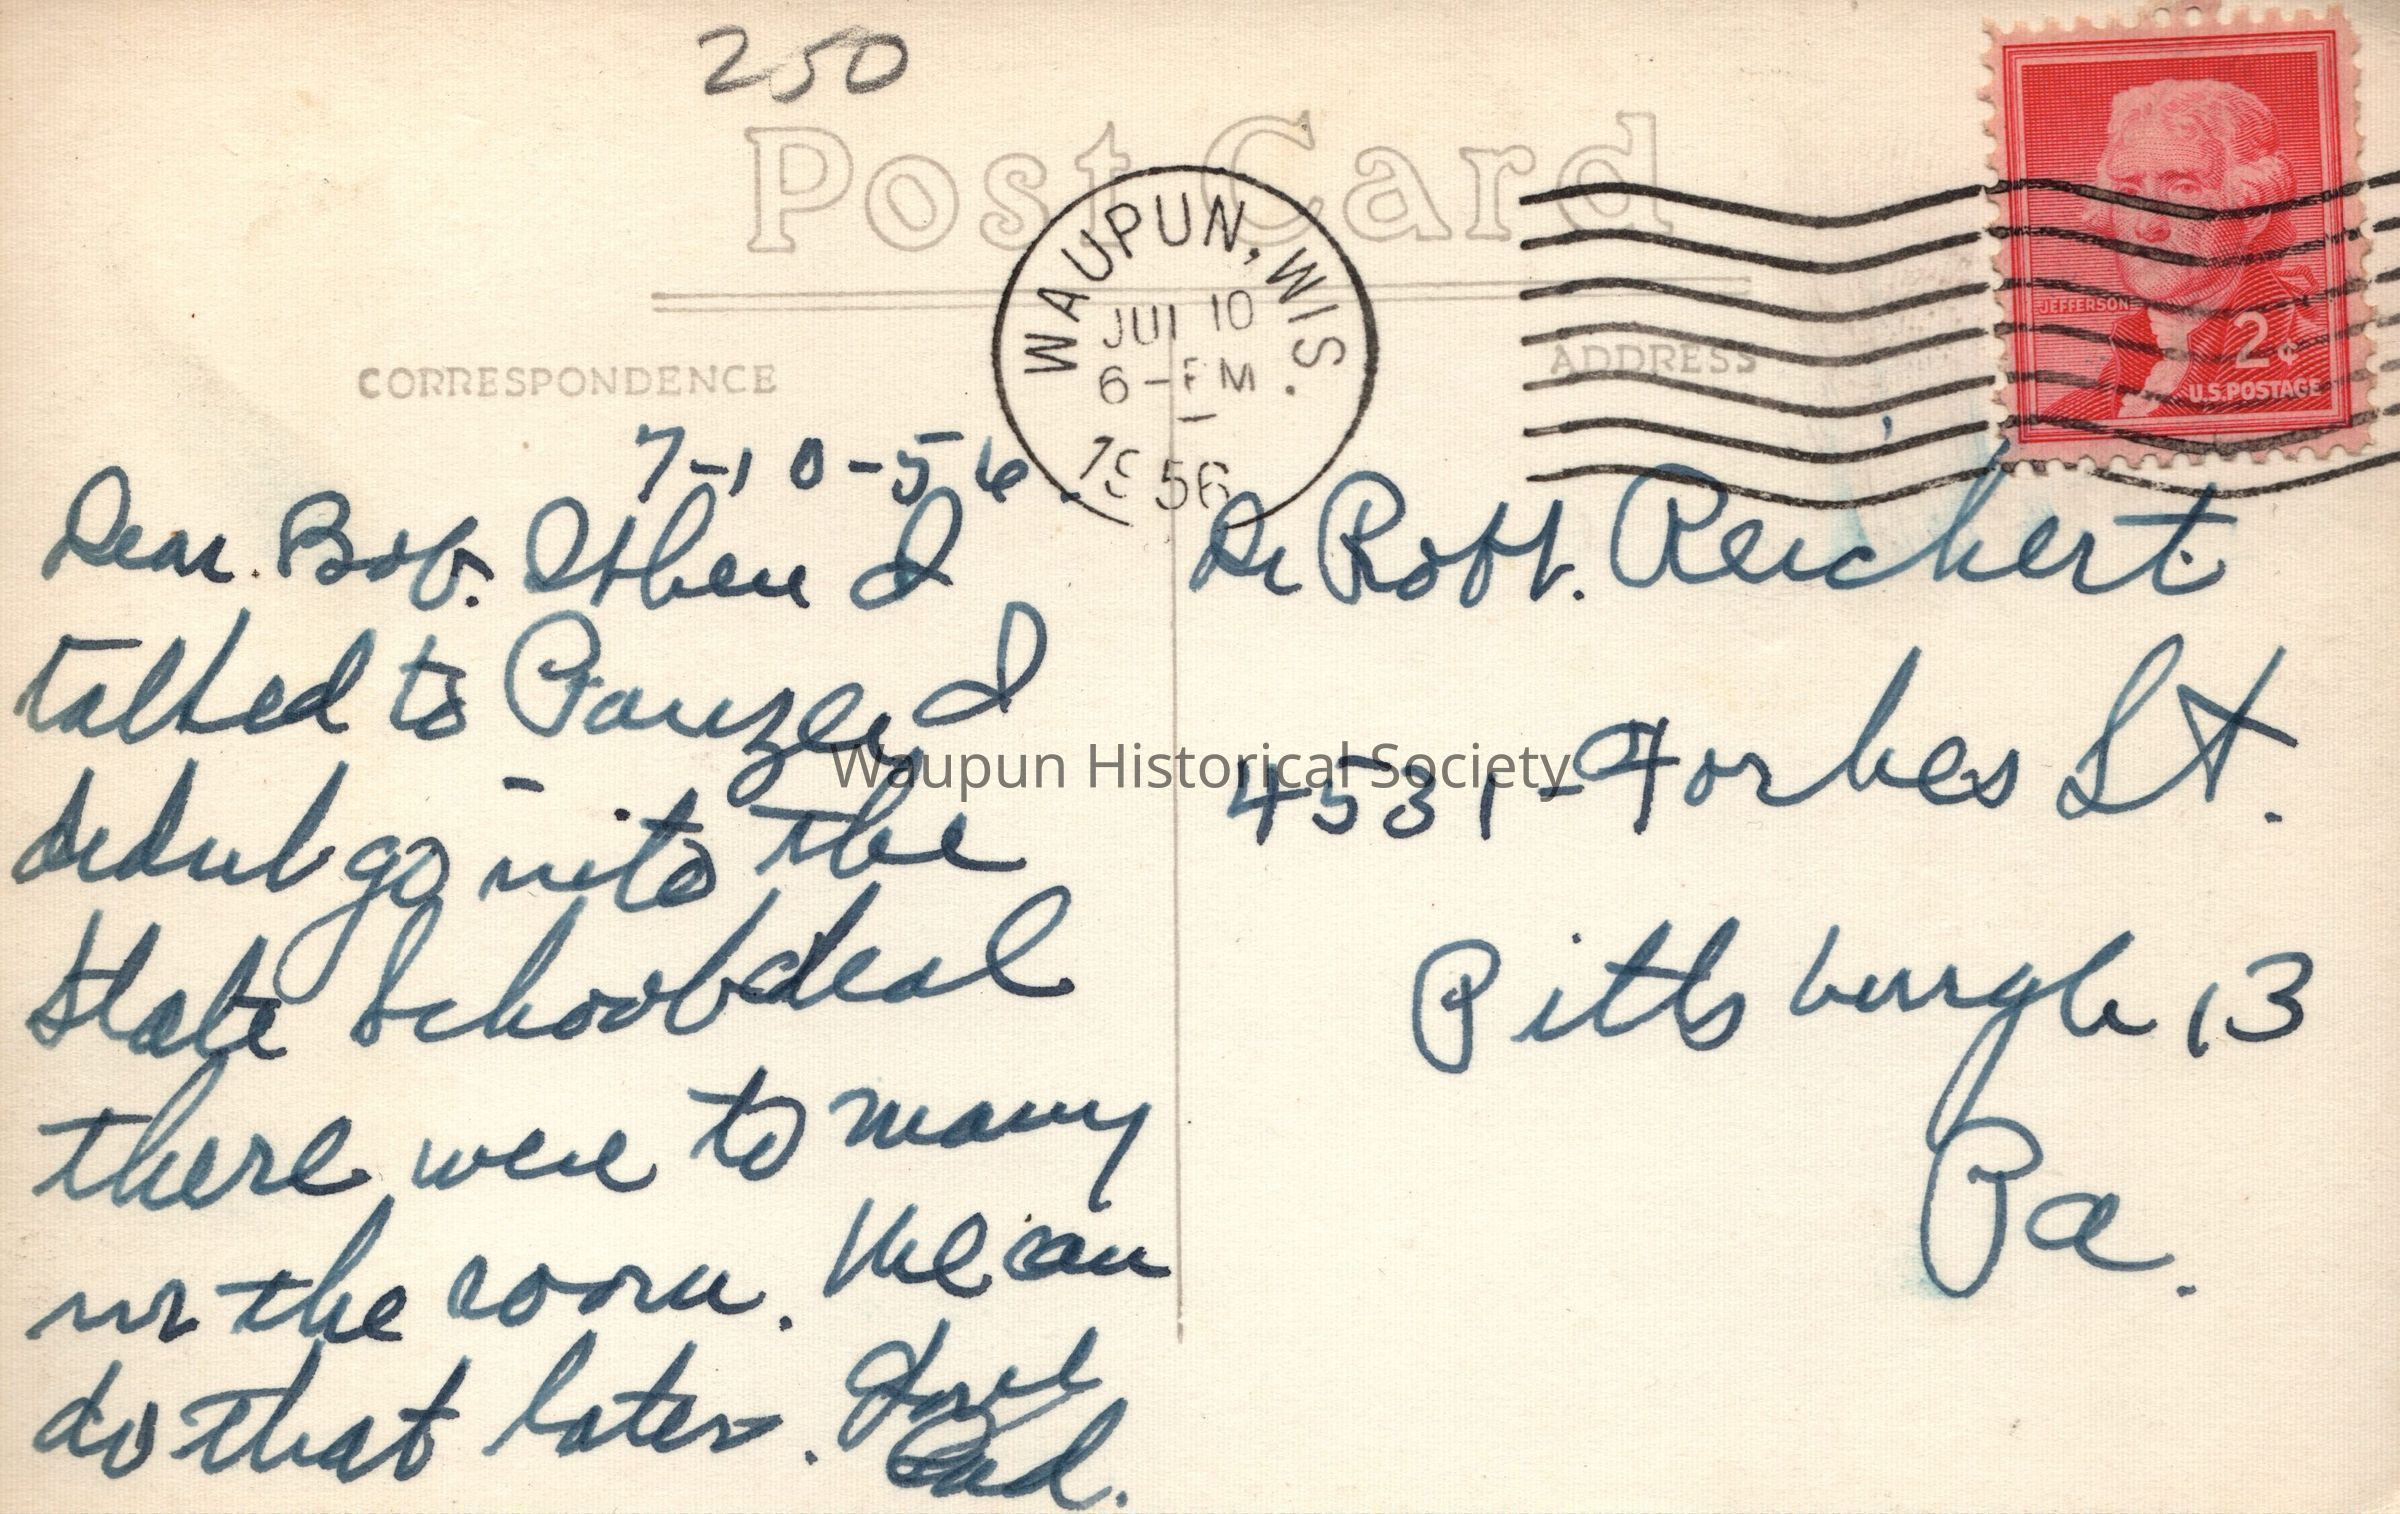 250
Post Card
WAUPUN, WIS.
JUL 10
6-PM
1956
JEFFERSON
2¢
U.S. POSTAGE
CORRESPONDENCE
ADDRESS
7-10-56.
Dear Bob. When I
talked to Panzer, I
didnt go into the
State School deal
there were to many
in the room. We can
do that later. Love
Dad.
Dr Robt. Reichert
4531-Forbes St.
Pittsburgh 13
Pa.
Waupun Historical Society